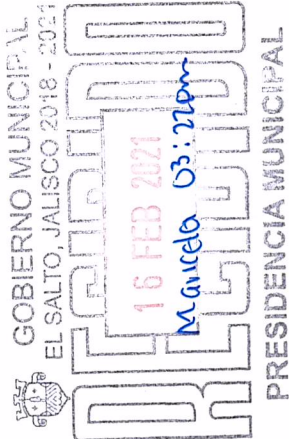 GOBIERNO MUNICIPAL
EL SALTO, JALISCO 2018 - 2021
RECIBIDO
16 FEB 2021
Maricela 03:22pm
PRESIDENCIA MUNICIPAL